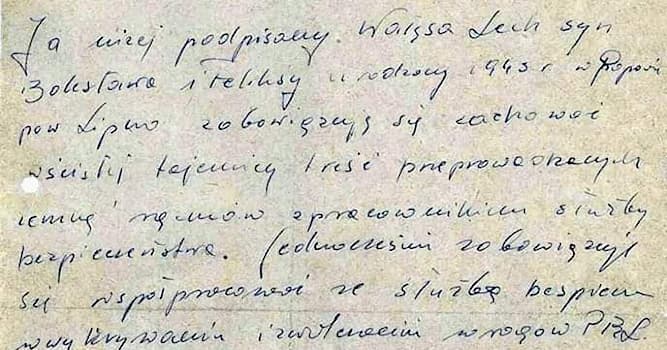 Ja niżej podpisany Wałęsa Lech syn
Bolesława i Feliksy urodzony 1943 r w Popowie
pow Lipno zobowiązuję się zachować
wścisłej tajemnicy treść przeprowadzonych
zemną rozmów zpracownikiem służby
bezpieczeństwa. Jednocześnie zobowiązuję
się współpracować ze służbą bezpiecz
wwykrywaniu izwalczaniu wrogów PRL.